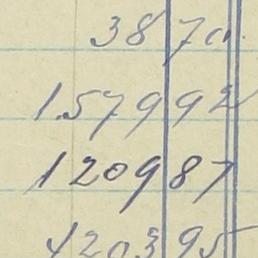 38 70
1579 92
1209 87
4203 95